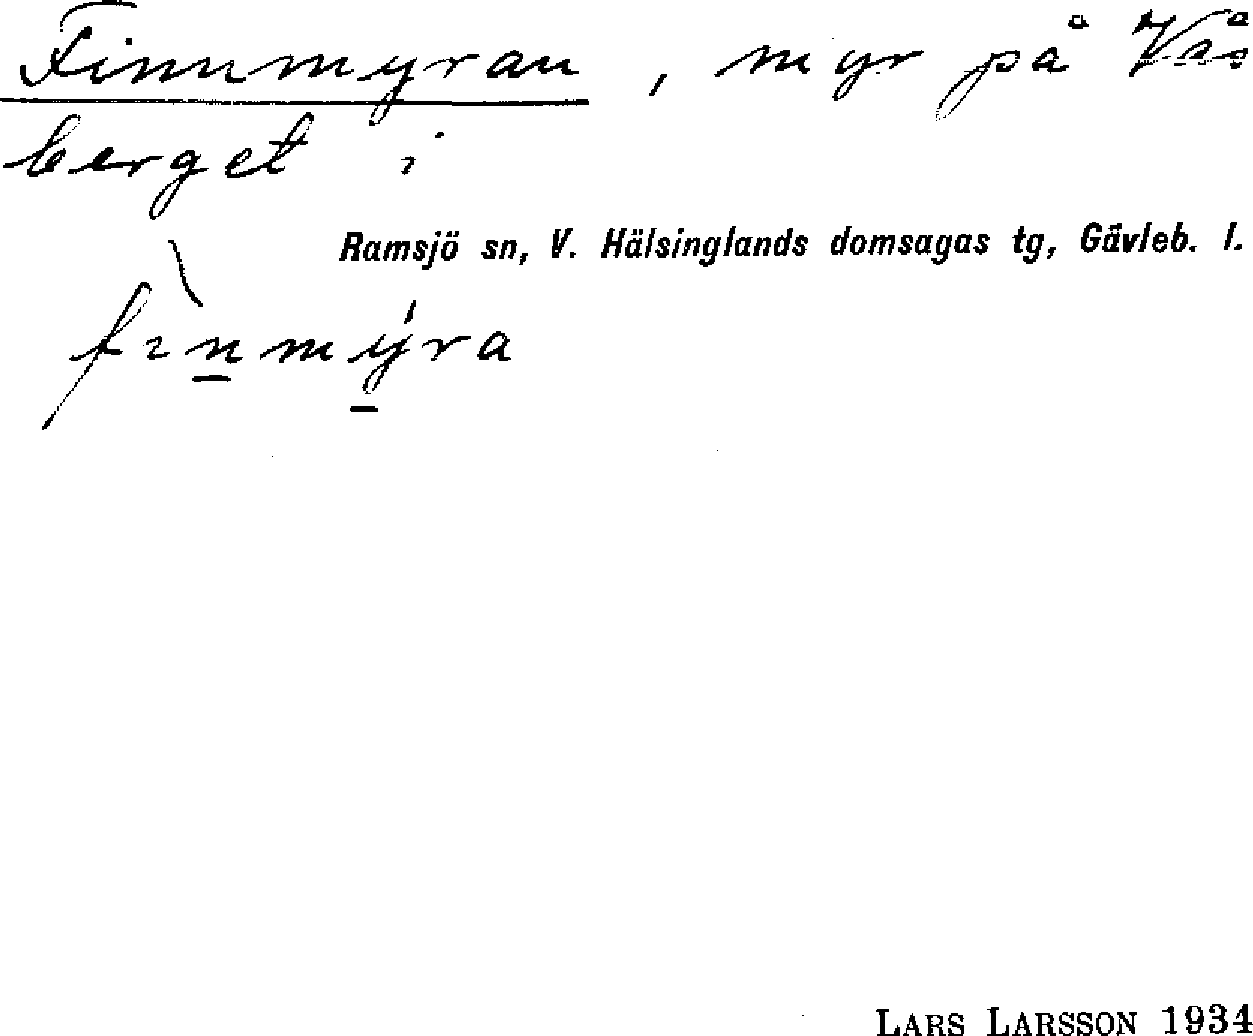 Finnmyran, myr på Vås
berget i
Ramsjö sn, V. Hälsinglands domsagas tg, Gävleb. l.
fìnmýra
LARS LARSSON 1934